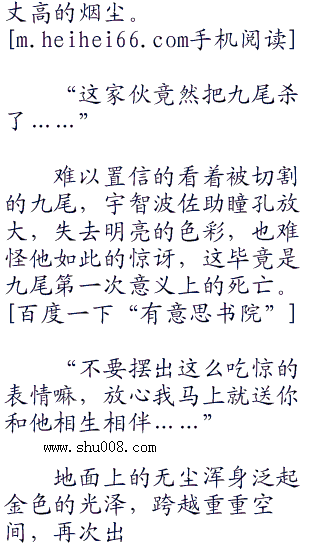 丈高的烟尘。
[m.heihei66.com手机阅读]
“这家伙竟然把九尾杀
了……”
难以置信的看着被切割
的九尾，宇智波佐助瞳孔放
大，失去明亮的色彩，也难
怪他如此的惊讶，这毕竟是
九尾第一次意义上的死亡。
[百度一下“有意思书院”]
“不要摆出这么吃惊的
表情嘛，放心我马上就送你
和他相生相伴……”
www.shu008.com
地面上的无尘浑身泛起
金色的光泽，跨越重重空
间，再次出